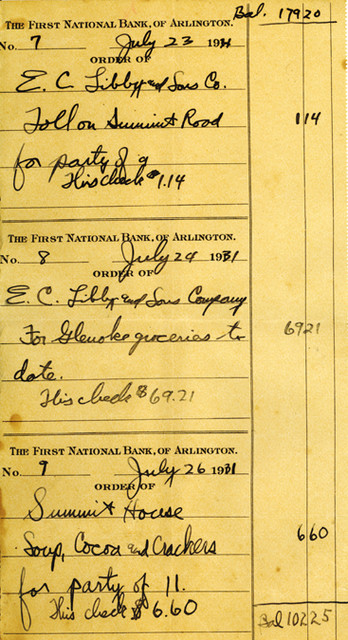 Bal. 179 20
THE FIRST NATIONAL BANK, OF ARLINGTON.
No. 7 July 23 1931
ORDER OF
E. C. Libby and Sons Co.
Toll on Summit Road 1 14
for party of 9
This check $1.14
THE FIRST NATIONAL BANK, OF ARLINGTON.
No. 8 July 24 1931
ORDER OF
E. C. Libby and Sons Company
For Glenoke groceries to 69 21
date.
This check $69.21
THE FIRST NATIONAL BANK, OF ARLINGTON.
No. 9 July 26 1931
ORDER OF
Summit House
Soup, Cocoa and Crackers 6 60
for party of 11.
This check $6.60
Bal 102 25